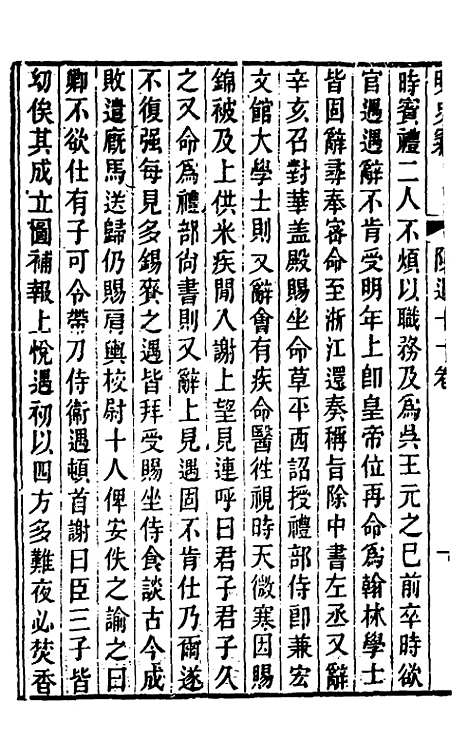 明史竊 陳遇十十卷 一
時賓禮二人不煩以職務及爲吳王元之巳前卒時欲
官遇遇辭不肯受明年上卽皇帝位再命爲翰林學士
皆固辭尋奉審命至浙江還奏稱旨除中書左丞又辭
辛亥召對華盖殿賜坐命草平西詔授禮部侍郎兼宏
文館大學士則又辭會有疾命醫徃視時天微寒因賜
錦被及上供米疾閒入謝上望見連呼曰君子君子久
之又命爲禮部尚書則又辭上見遇固不肯仕乃爾遂
不復强每見多錫賚之遇皆拜受賜坐侍食談古今成
敗遣厩馬送歸仍賜肩輿校尉十人俾安佚之諭之曰
卿不欲仕有子可令帶刀侍衞遇頓首謝曰臣三子皆
幼俟其成立圖補報上悅遇初以四方多難夜必焚香